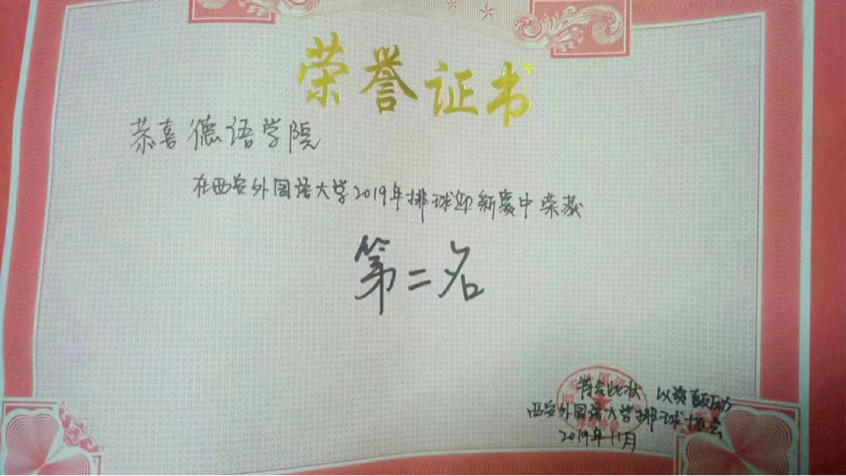 荣誉证书
恭喜德语学院
在西安外国语大学2019年排球迎新赛中荣获
第二名
特发此状 以资鼓励
西安外国语大学排球协会
2019年11月